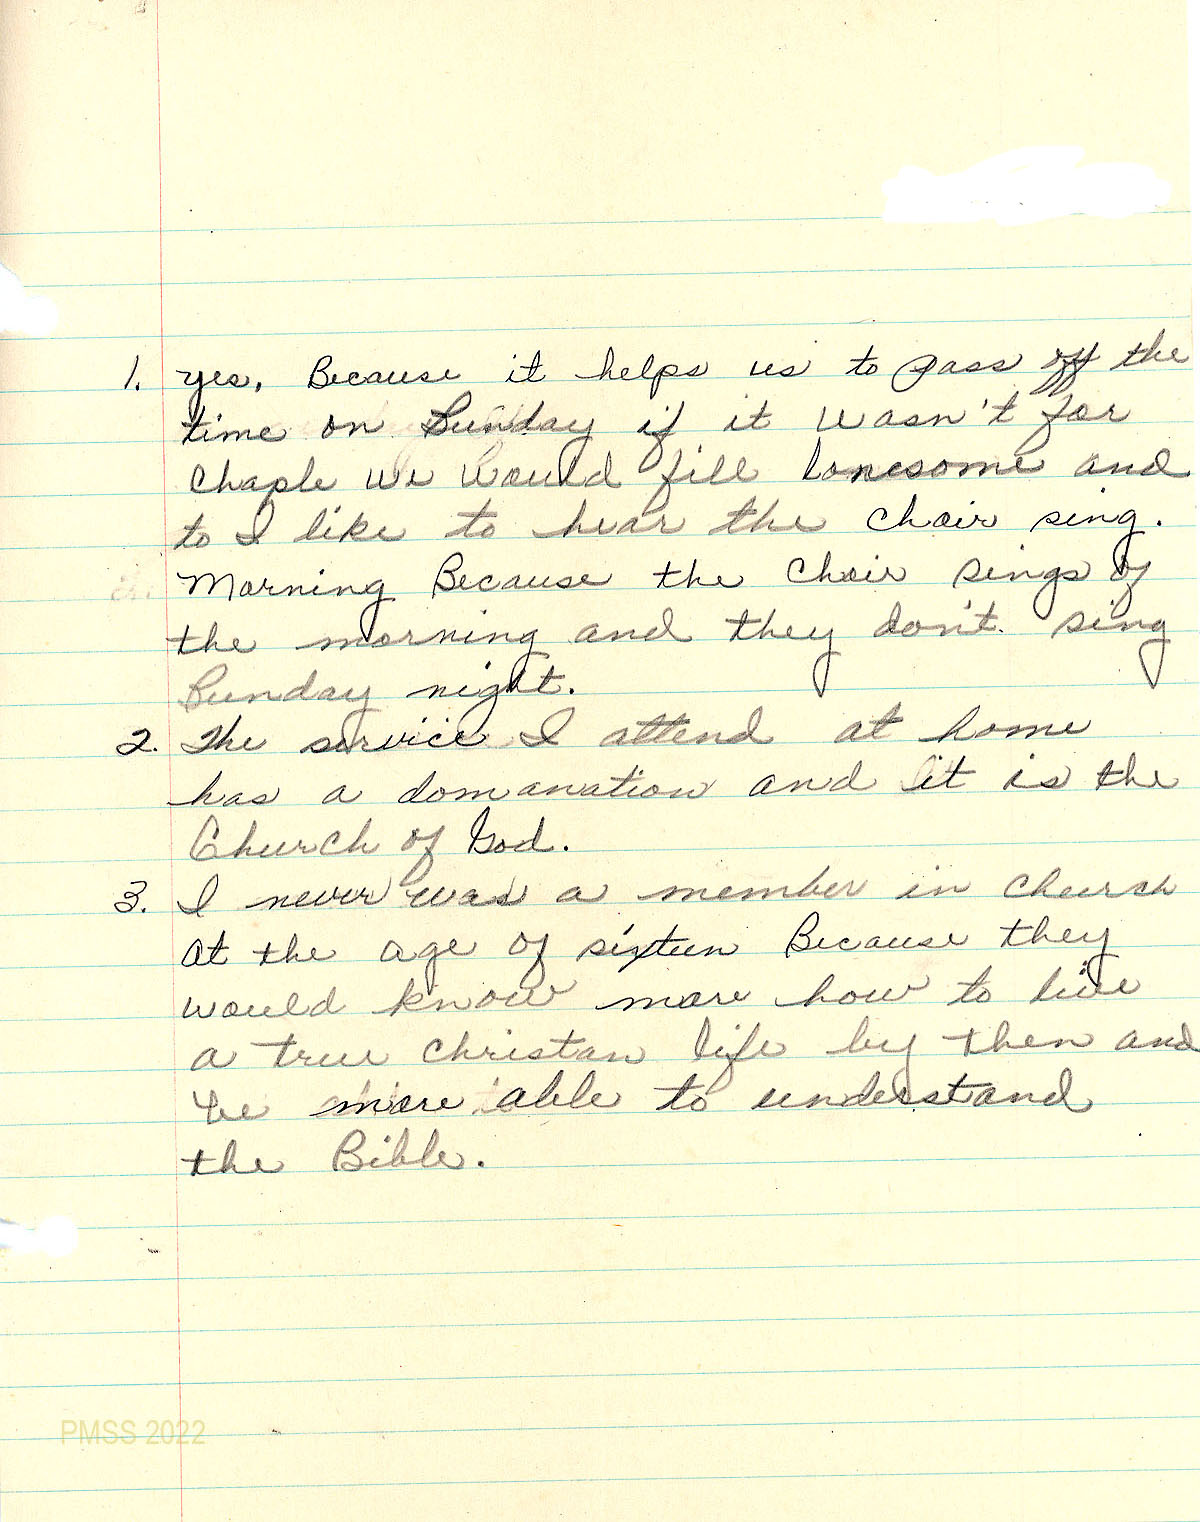 1. yes, Because it helps us to pass off the
time on Sunday if it wasn't for
Chaple we would fill lonesome and
to I like to hear the choir sing.
Morning Because the Choir sings of
the morning and they don't. sing
Sunday night.
2. The service I attend at home
has a domanation and it is the
Church of God.
3. I never was a member in Church
at the age of sixteen Because they
would know more how to live
a true christan life by then and
be more able to understand
the Bible.
PMSS 2022